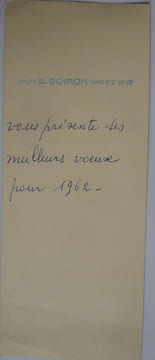 PHOTO S. BOIRON PARIS
vous présente ses
meilleurs voeux
pour 1962 -